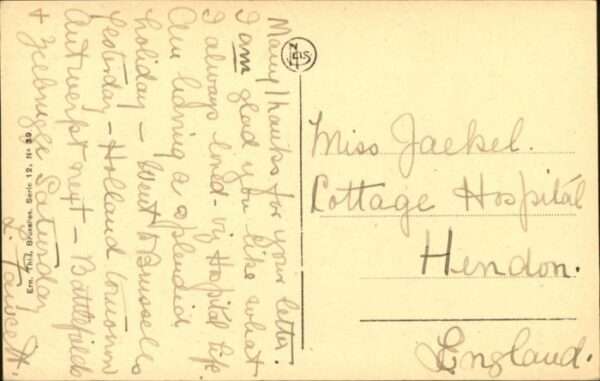 Many thanks for your letter.
I am glad you like what
I always loved - viz Hospital life.
Am having a splendid
holiday - Went to Brussels
yesterday - Holland tomorrow
Antwerp next - Battlefields
+ Zeebrugge Saturday
L. Fawcett.
Ern. Thill, Bruxelles. Serie 12, No 39
NELS
Miss Jaekel.
Cottage Hospital
Hendon.
England.